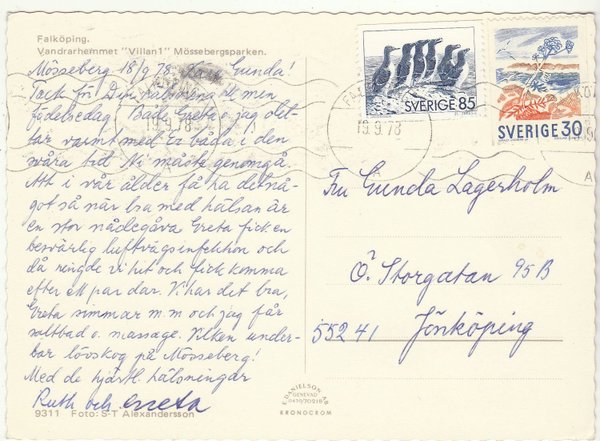 Falköping.
Vandrarhemmet "Villan1" Mössebergsparken.
Mösseberg 18/9 78. Gunda!
Tack för Din hälsning till min
födelsedag. Både Greta o jag del-
tar varmt med Er båda i den
svåra tid Ni måste genomgå.
Att i vår ålder få ha det nå-
got så när bra med hälsan är
en stor nådegåva. Greta fick en
besvärlig luftvägsinfektion och
då ringde vi hit och fick komma
efter ett par dar. Vi har det bra,
Greta simmar m.m och jag får
saltbad o. massage. Vilken under-
bar lövskog på Mösseberg!
Med de hjärtl. hälsningar
Ruth och Greta
9311 Foto: S-T Alexandersson
SVERIGE 85
SVERIGE 30
19.9.78
19.9.78
A
A
Fru Gunda Lagerholm
Ö. Storgatan 95 B
552 41 Jönköping
E. DANIELSON AB
GENEVAD
0430/70218
KRONOCROM